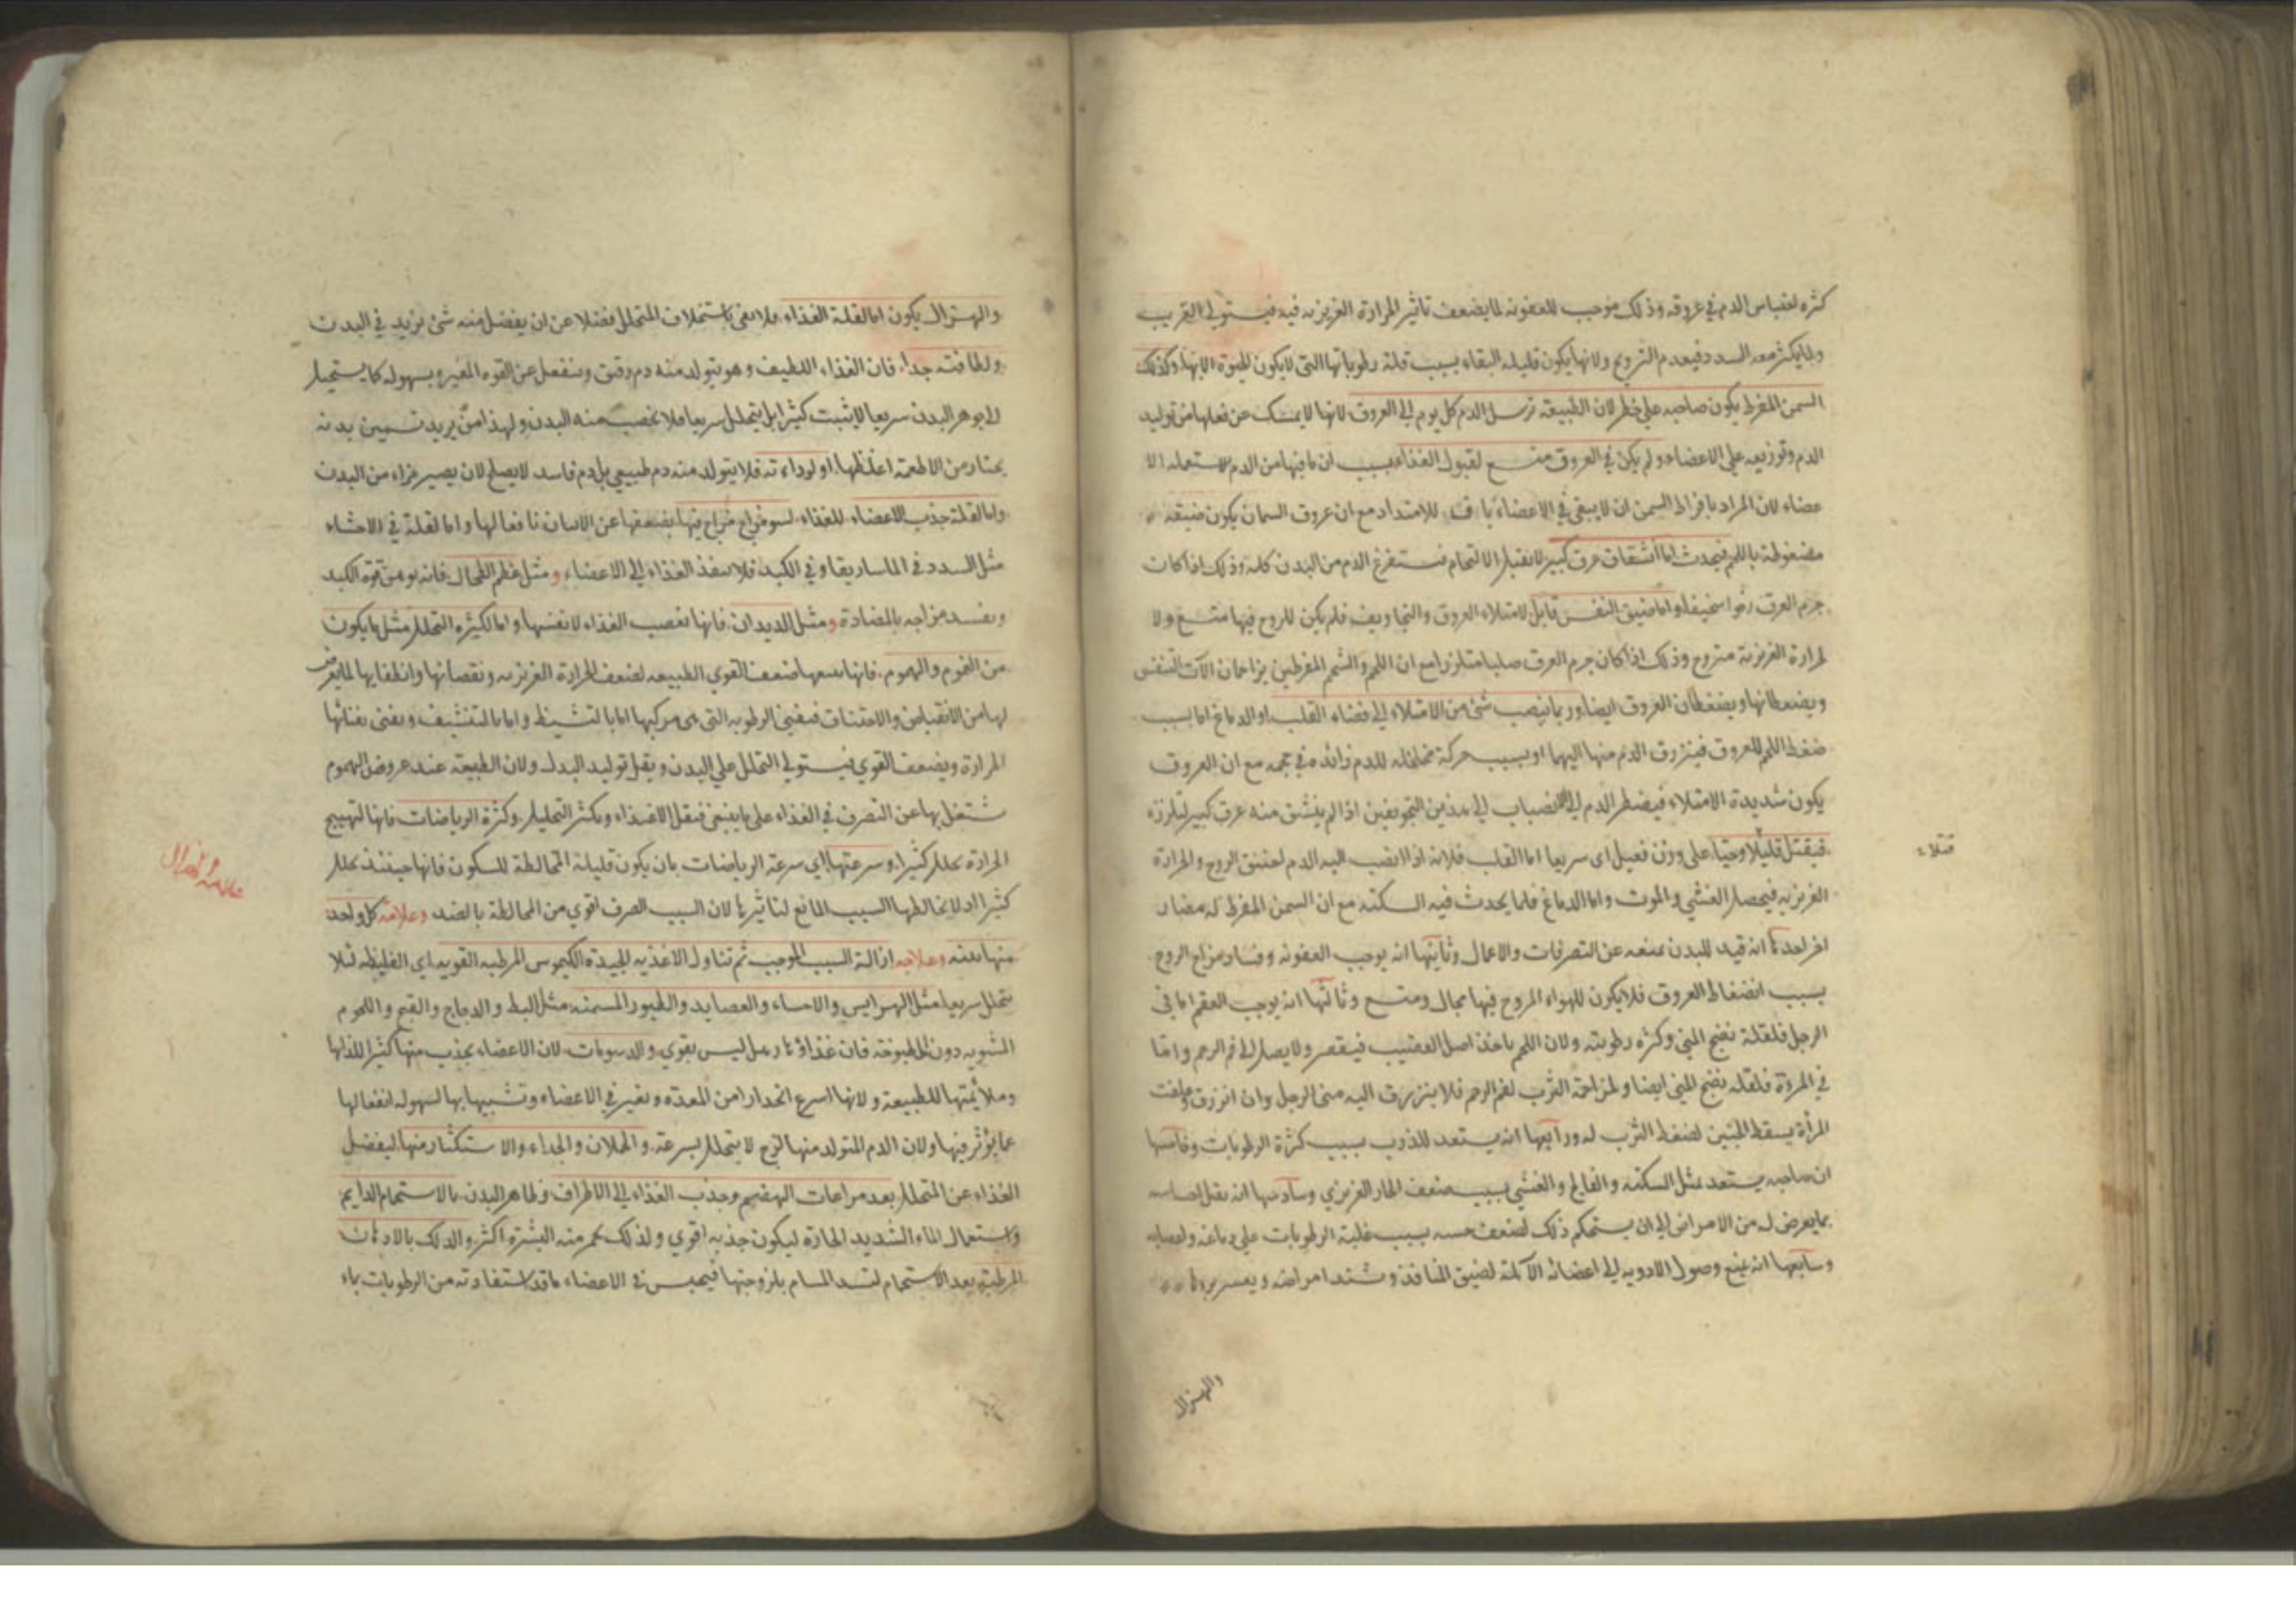 كثره احتباس الدم في عروقه وذلك موجب للعفونه لما يضعف تاثير الحرارة الغريزيه فيه فيستولي الغريب
ولما يكثر معه السدد فيعدم الترويح ولانها يكون قليله البقاء بسبب قلة رطوباتها التي لا يكون للحيوة الا بها وكذلك
السمن المفرط يكون صاحبه علي خطر لان الطبيعة ترسل الدم كل يوم الي العروق لانها لا يمسك عن فعلها من توليد
الدم وتوزيعه علي الاعضاء ولم يكن في العروق متسع لقبول الغذاء بسبب ان ما فيها من الدم لم يستعمله الا
عضاء لان المراد بافراط السمن ان لا يبقي في الاعضاء للامتداد مع ان عروق السمان يكون ضيقه
مضغوطة باللحم فيحدث اما انشقاق عرق كبير لا يقبل الالتحام فيستفرغ الدم من البدن كله وذلك اذا كان
جرم العرق رخوا سخيفا واما ضيق النفس قاتل لامتلاء العروق والتجاويف فلم يكن للروح فيها متسع ولا
لحرارة الغريزية متروح وذلك اذا كان جرم العرق صلبا متلززا مع ان اللحم والشحم المفرطين يزاحمان الات التنفس
ويضغطانها ويضغطان العروق ايضا وربما ينصب شئ من الامتلاء الي فضاء القلب او الدماغ اما بسبب
ضغط اللحم للعروق فينزرق الدم منها اليهما او بسبب حركة مخلخله للدم زائده في حجمه مع ان العروق
يكون شديدة الامتلاء فيضطر الدم الي الانصباب الي هذين التجويفين اذا لم ينشق منه عرق كبير لتلززه
فيقتل قليلا وحيا علي وزن فعيل اي سريعا اما القلب فلانه اذا انصب اليه الدم اختنق الروح والحرارة
قتلا ء
الغريزيه فيحصل الغشي والموت واما الدماغ فلما يحدث فيه السكته مع ان السمن المفرط له مضار
اخر احدها انه قيد للبدن يمنعه عن التصرفات والاعمال وثانيها انه يوجب العفونه وفساد مزاج الروح
بسبب انضغاط العروق فلا يكون للهواء المروح فيها مجال ومتسع وثالثها انه يوجب العقم اما في
الرجل فلقلة نضج المني وكثره رطوبته ولان اللحم ياخذ اصل القضيب فيقصر ولا يصل الي فم الرحم واما
في المرءة فلقله نضج المني ايضا ولمزاحمة الثرب لفم الرحم فلا ينزرق اليه مني الرجل وان انزرق وعلقت
المرأة يسقط الجنين لضغط الثرب له ورابعها انه يستعد للذرب بسبب كثرة الرطوبات وخامسها
ان صاحبه يستعد لمثل السكته والفالج والغشي بسبب ضعف الحار الغريزي وسادسها انه يقل احساسه
بما يعرض له من الامراض الي ان يستحكم ذلك لضعف حسه بسبب غلبة الرطوبات علي دماغه واعصابه
وسابعها انه يمنع وصول الادويه الي اعضائه الآلمة لضيق المنافذ وتشتد امراضه ويعسر بروها
والهزال
والهزال يكون اما لقلة الغذاء فلا يفي باستخلاف المتحلل فضلا عن ان يفضل منه شئ يزيد في البدن
ولطافته جدا فان الغذاء اللطيف وهو يتولد منه دم رقيق وينفعل عن القوه المغيره بسهوله كما يستحيل
الي جوهر البدن سريعا لا يثبت كثيرا بل يتحلل سريعا فلا يخصب منه البدن ولهذا من يريد تسمين بدنه
يختار من الاطعمة اغلظها او لرداءته فلا يتولد منه دم طبيعي بل دم فاسد لا يصلح لان يصير جزاء من البدن
واما لقلة جذب الاعضاء للغذاء لسو مزاج فيها يضعفها عن افعالها واما لعلة في الاحشاء
مثل السدد في الماساريقا وفي الكبد فلا ينفذ الغذاء الي الاعضاء ومثل عظم الطحال فانه يوهن قوة الكبد
ويفسد مزاجه بالمضادة ومثل الديدان فانها تغصب الغذاء لانفسها واما لكثره التحلل مثل ما يكون
من الغموم والهموم فانها يتبعها ضعف القوي الطبيعيه لضعف الحرارة الغريزيه ونقصانها وانطفايها لما يعرض
لها من الانقباض والاختناق فيفني الرطوبه التي هي مركبها اما بالتشيط واما بالتنشيف ويفني بفنائها
الحرارة ويضعف القوي فيستولي التحلل علي البدن ويقل توليد البدل ولان الطبيعة عند عروض الهموم
تشتغل بها عن التصرف في الغذاء علي ما ينبغي فيقل الاغتذاء ويكثر التحليل وكثرة الرياضات فانها لتهييج
الحرارة يحلل كثيرا وسرعتها اي سرعة الرياضات بان يكون قليلة المخالطة للسكون فانها حينئذ يحلل
علامة الهزال
كثيرا اذ لا يخالطها السبب المانع لتاثيرها لان السبب الصرف اقوي من المخالطة بالضد وعلامة كل واحد
منها بعينه وعلاجه ازالة السبب الموجب ثم تناول الاغذيه الجيدة الكيموس المرطبه القويه اي الغليظه لئلا
يتحلل سريعا مثل الهرايس والاحساء والعصايد والطيور المسمنه مثل البط والدجاج والقبج واللحوم
المشويه دون المطبوخة فان غذاؤها رهل ليس بقوي والدسومات لان الاعضاء يجذب منها كثيرا للذتها
وملائمتها للطبيعة ولانها اسرع انحدارا من المعدة وتغير في الاعضاء وتشبيها بها لسهوله انفعالها
عما يؤثر فيها ولان الدم المتولد منها لزج لا يتحلل بسرعة والحملان والجداء والاستكثار منها ليفضل
الغذاء عن المتحلل بعد مراعات الهضم وجذب الغذاء الي الاطراف وظاهر البدن بالاستحمام الدايم
واستعمال الماء الشديد الحارة ليكون جذبه اقوي ولذلك يحمر منه البشره اكثر والدلك بالادهان
المرطبة بعد الاستحمام لتسد المسام بلزوجتها فيحبس في الاعضاء ما قد استفادته من الرطوبات بماء